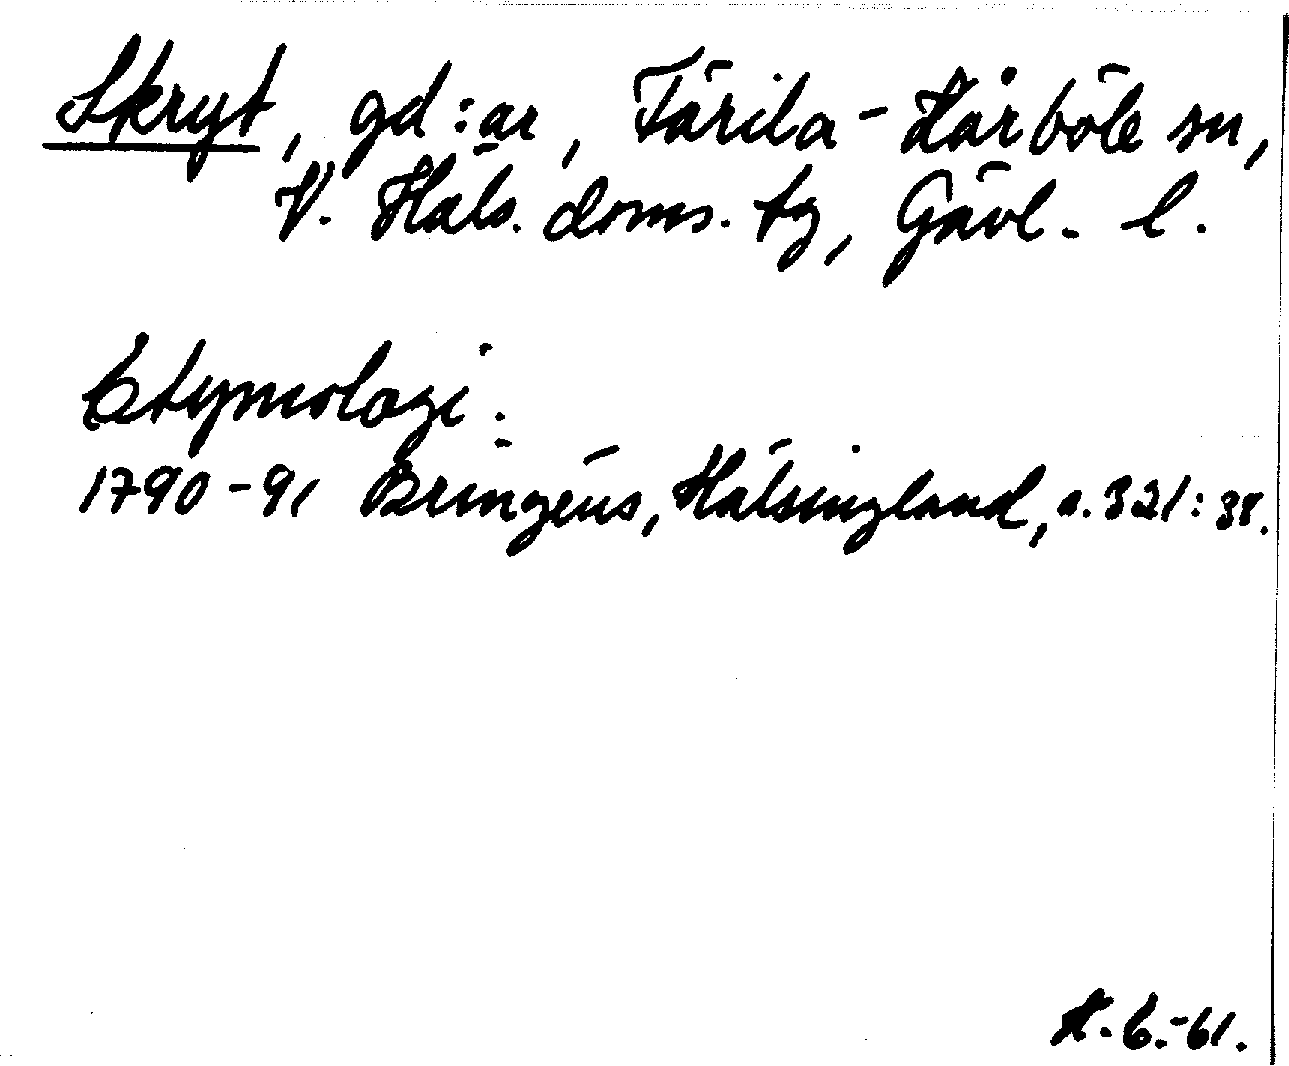 Skryt, gd:ar, Färila-Kårböle sn,
V. Häls. doms. tg, Gävl. l.
Etymologi:
1790-91 Bringéus, Hälsingland, s. 321:38.
H. G.-61.